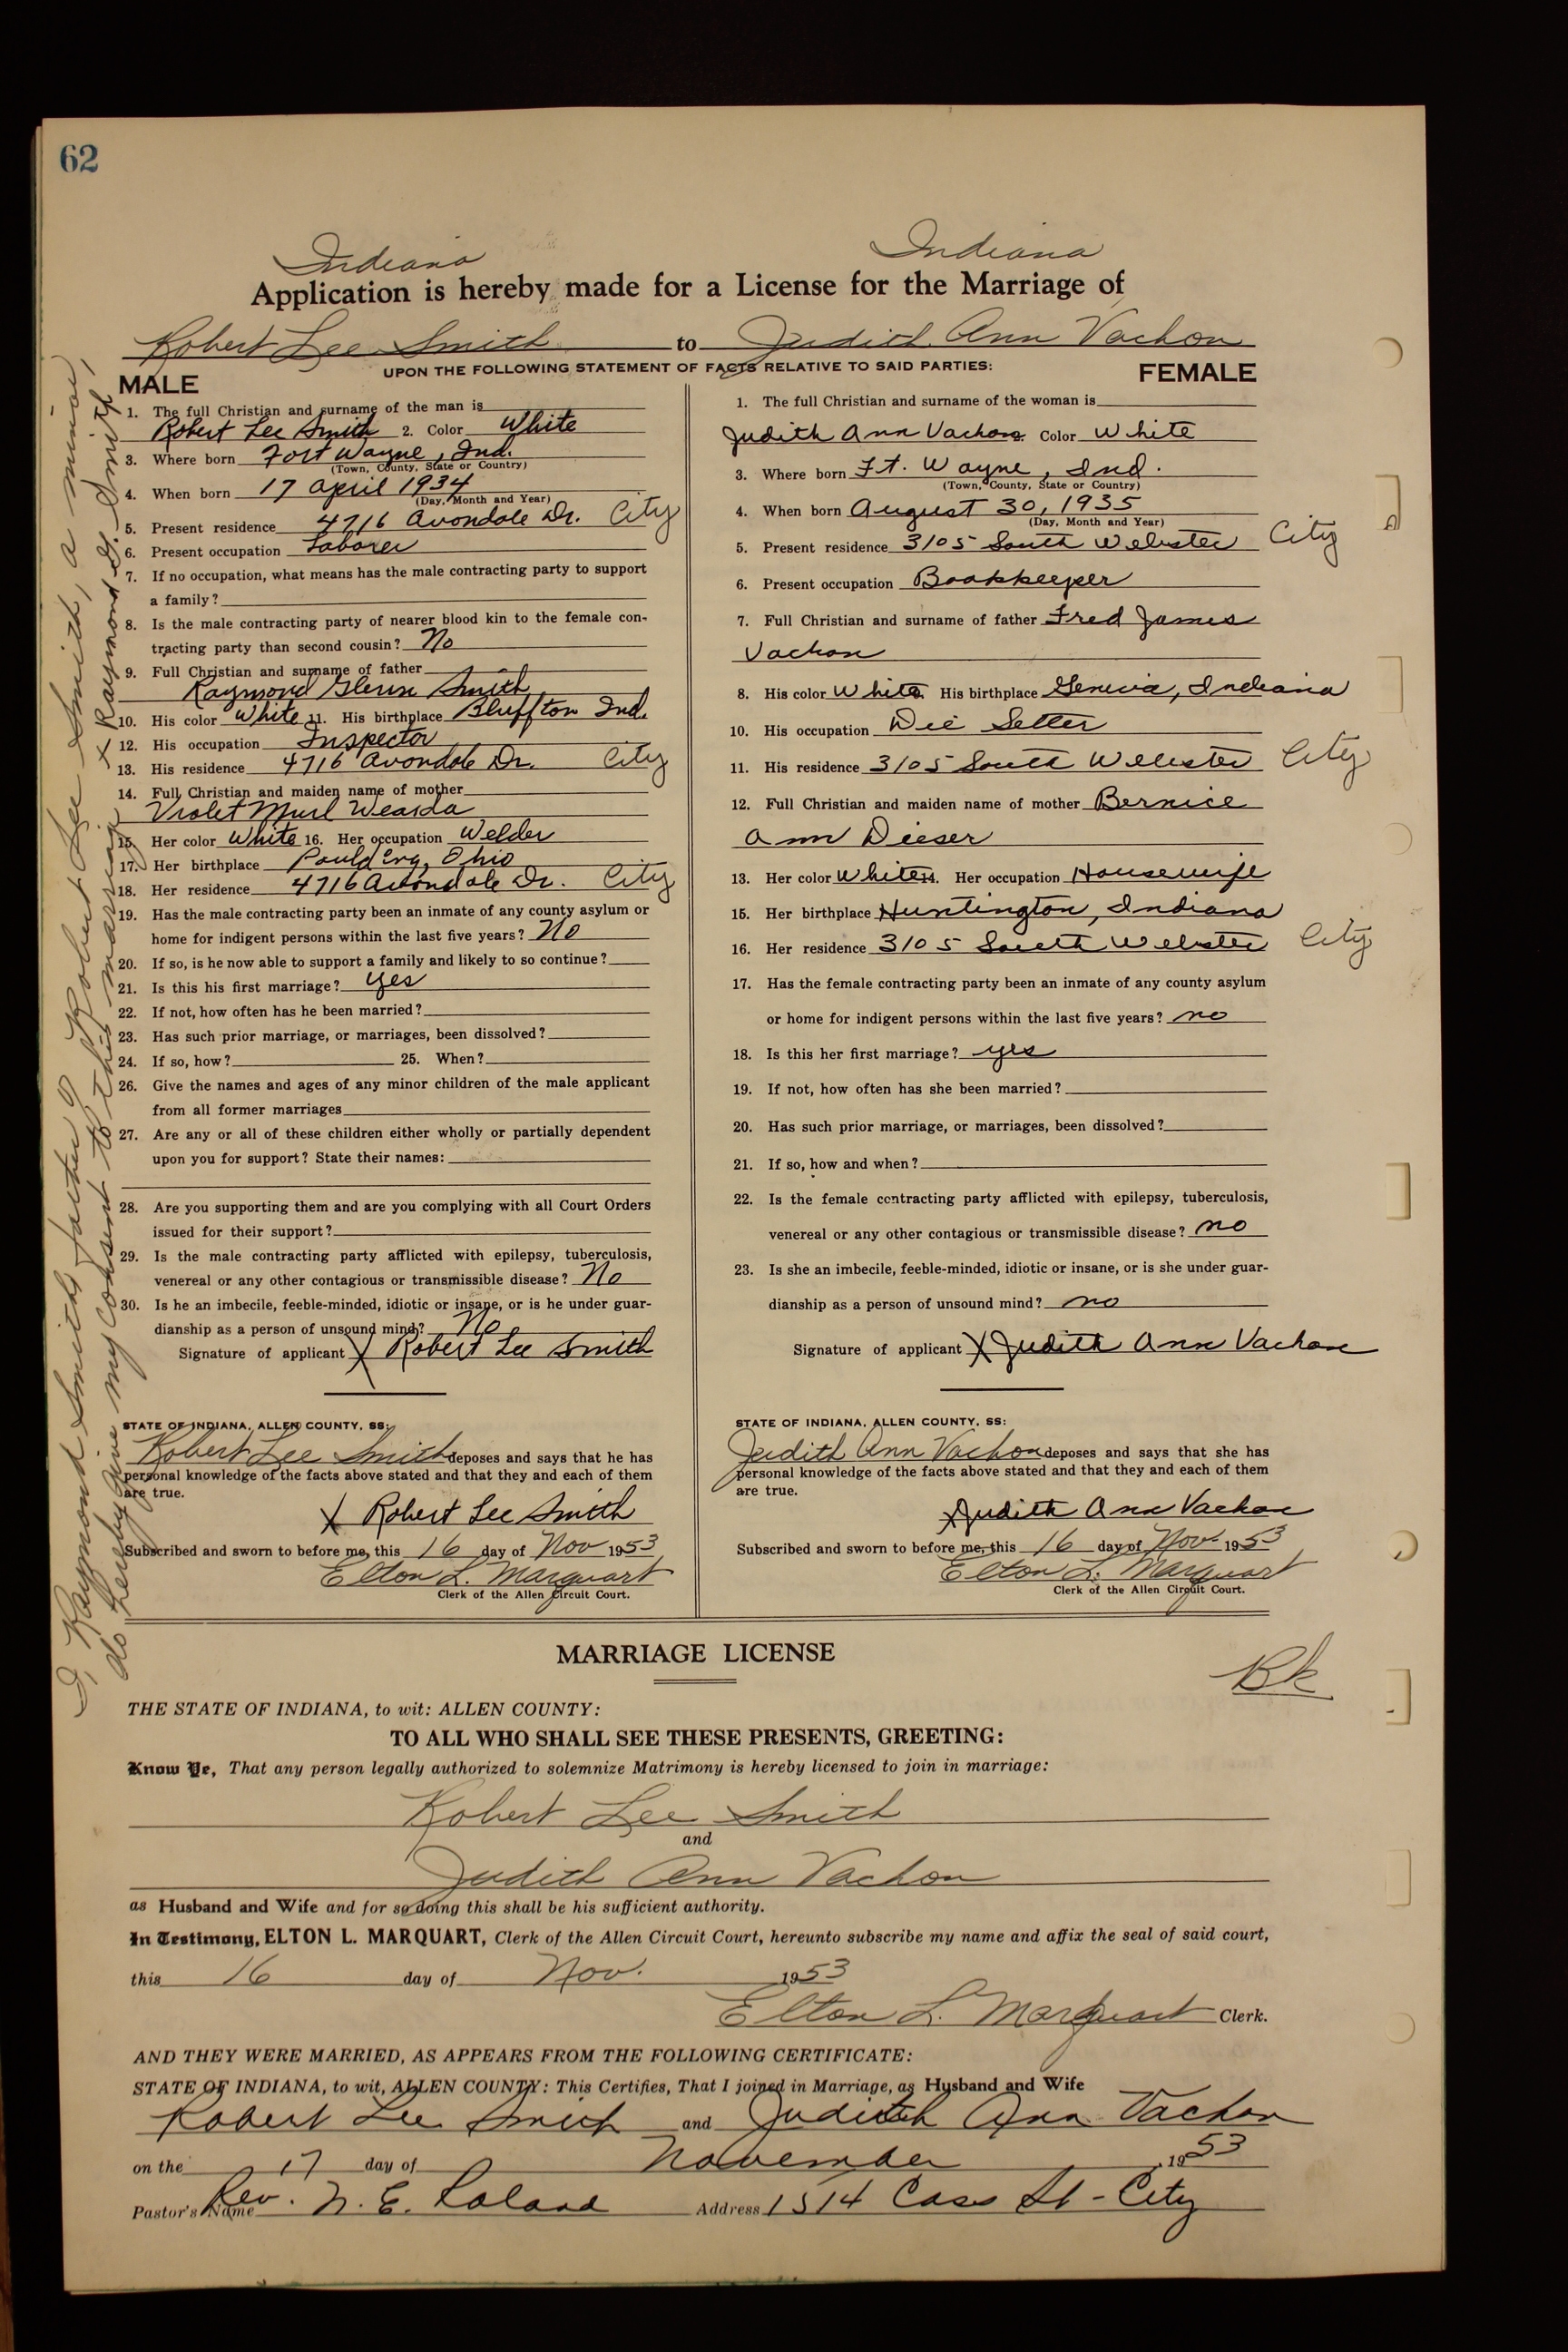 62
Indiana Indiana
Application is hereby made for a License for the Marriage of
Robert Lee Smith to Judith Ann Vachon
UPON THE FOLLOWING STATEMENT OF FACTS RELATIVE TO SAID PARTIES:
MALE
1. The full Christian and surname of the man is
Robert Lee Smith 2. Color White
3. Where born Fort Wayne, Ind.
(Town, County, State or Country)
4. When born 17 April 1934
(Day, Month and Year)
5. Present residence 4716 Avondale Dr. City
6. Present occupation Laborer
7. If no occupation, what means has the male contracting party to support
a family?
8. Is the male contracting party of nearer blood kin to the female con-
tracting party than second cousin? No
9. Full Christian and surname of father
Raymond Glenn Smith
10. His color White 11. His birthplace Bluffton Ind.
12. His occupation Inspector
13. His residence 4716 Avondale Dr. City
14. Full Christian and maiden name of mother
Violet Murl Wearda
15. Her color White 16. Her occupation Welder
17. Her birthplace Paulding, Ohio
18. Her residence 4716 Avondale Dr. City
19. Has the male contracting party been an inmate of any county asylum or
home for indigent persons within the last five years? No
20. If so, is he now able to support a family and likely to so continue?
21. Is this his first marriage? Yes
22. If not, how often has he been married?
23. Has such prior marriage, or marriages, been dissolved?
24. If so, how? 25. When?
26. Give the names and ages of any minor children of the male applicant
from all former marriages
27. Are any or all of these children either wholly or partially dependent
upon you for support? State their names:
28. Are you supporting them and are you complying with all Court Orders
issued for their support?
29. Is the male contracting party afflicted with epilepsy, tuberculosis,
venereal or any other contagious or transmissible disease? No
30. Is he an imbecile, feeble-minded, idiotic or insane, or is he under guar-
dianship as a person of unsound mind? No
Signature of applicant X Robert Lee Smith
STATE OF INDIANA, ALLEN COUNTY, SS:
Robert Lee Smith deposes and says that he has
personal knowledge of the facts above stated and that they and each of them
are true.
X Robert Lee Smith
Subscribed and sworn to before me, this 16 day of Nov 1953
Elton L. Marquart
Clerk of the Allen Circuit Court.
FEMALE
1. The full Christian and surname of the woman is
Judith Ann Vachon Color White
3. Where born Ft. Wayne, Ind.
(Town, County, State or Country)
4. When born August 30, 1935
(Day, Month and Year)
5. Present residence 3105 South Webster City
6. Present occupation Bookkeeper
7. Full Christian and surname of father Fred James
Vachon
8. His color White His birthplace Geneva, Indiana
10. His occupation Die Setter
11. His residence 3105 South Webster City
12. Full Christian and maiden name of mother Bernice
Ann Dieser
13. Her color White 14. Her occupation Housewife
15. Her birthplace Huntington, Indiana
16. Her residence 3105 South Webster City
17. Has the female contracting party been an inmate of any county asylum
or home for indigent persons within the last five years? no
18. Is this her first marriage? yes
19. If not, how often has she been married?
20. Has such prior marriage, or marriages, been dissolved?
21. If so, how and when?
22. Is the female contracting party afflicted with epilepsy, tuberculosis,
venereal or any other contagious or transmissible disease? no
23. Is she an imbecile, feeble-minded, idiotic or insane, or is she under guar-
dianship as a person of unsound mind? no
Signature of applicant X Judith Ann Vachon
STATE OF INDIANA, ALLEN COUNTY, SS:
Judith Ann Vachon deposes and says that she has
personal knowledge of the facts above stated and that they and each of them
are true.
X Judith Ann Vachon
Subscribed and sworn to before me, this 16 day of Nov 1953
Elton L. Marquart
Clerk of the Allen Circuit Court.
I, Raymond Smith, father of Robert Lee Smith, a minor,
do hereby give my consent to this marriage.
X Raymond G. Smith
MARRIAGE LICENSE
Bk
THE STATE OF INDIANA, to wit: ALLEN COUNTY:
TO ALL WHO SHALL SEE THESE PRESENTS, GREETING:
Know Ye, That any person legally authorized to solemnize Matrimony is hereby licensed to join in marriage:
Robert Lee Smith
and
Judith Ann Vachon
as Husband and Wife and for so doing this shall be his sufficient authority.
In Testimony, ELTON L. MARQUART, Clerk of the Allen Circuit Court, hereunto subscribe my name and affix the seal of said court,
this 16 day of Nov. 1953
Elton L. Marquart Clerk.
AND THEY WERE MARRIED, AS APPEARS FROM THE FOLLOWING CERTIFICATE:
STATE OF INDIANA, to wit, ALLEN COUNTY: This Certifies, That I joined in Marriage, as Husband and Wife
Robert Lee Smith and Judith Ann Vachon
on the 17 day of November 1953
Pastor's Name Rev. N. E. Roland Address 1514 Cass St - City